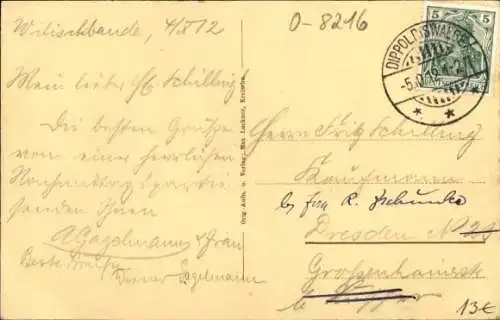 Wilischbaude, 4/X 12
0-8216
5 5
DIPPOLDISWALDE
Mein lieber H. Schilling
Die besten Grüsse
von einer herrlichen
Nachmittagspartie
senden Ihnen
A. Gagelmann u. Frau
Beste Grüsse
Werner Gagelmann
Orig.-Aufn. u. Verlag: Max Lackner, Kreischa.
Herrn Fritz Schilling
Kaufmann
bei Frau R.
Dresden N
Großenhainerstr
13€